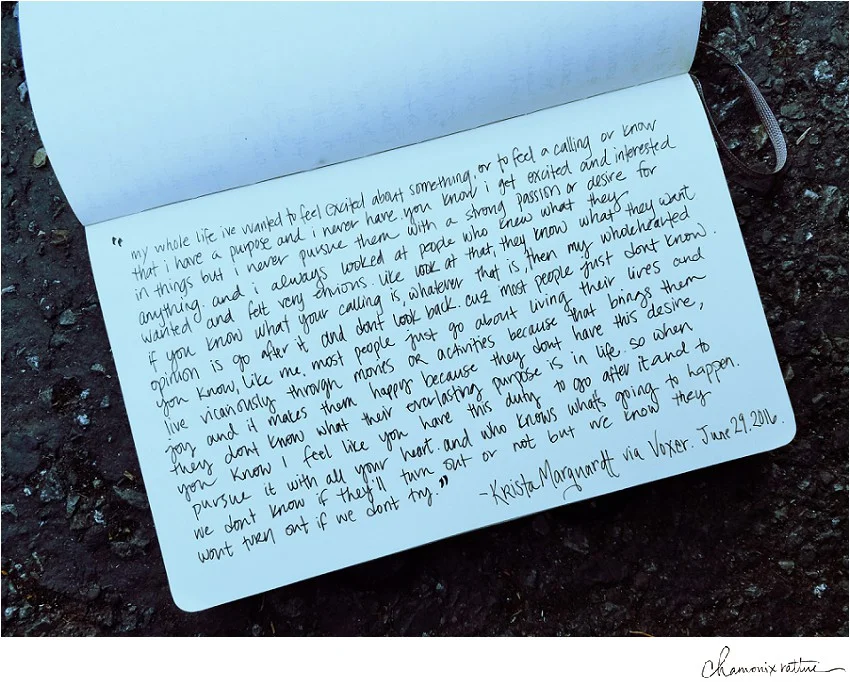 "my whole life ive wanted to feel excited about something, or to feel a calling or know
that i have a purpose and i never have. you know i get excited and interested
in things but i never pursue them with a strong passion or desire for
anything. and i always looked at people who knew what they
wanted and felt very envious. like look at that, they know what they want
if you know what your calling is, whatever that is, then my wholehearted
opinion is go after it and dont look back. cuz most people just dont know.
you know, like me. most people just go about living their lives and
live vicariously through movies or activities because that brings them
joy and it makes them happy because they dont have this desire,
they dont know what their everlasting purpose is in life. so when
you know I feel like you have this duty to go after it and to
pursue it with all your heart. and who knows what's going to happen.
we don't know if they'll turn out or not but we know they
wont turn out if we dont try."
-Krista Marquardt via Voxer. June 29. 2016.
chamonix